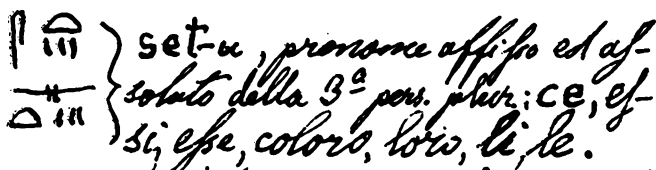 𓋴𓏏𓏥 } set-u, pronome affisso ed as-
𓊃𓏏𓏥 soluto della 3ª pers. plur.; ce, es-
si, esse, coloro, loro, li, le.